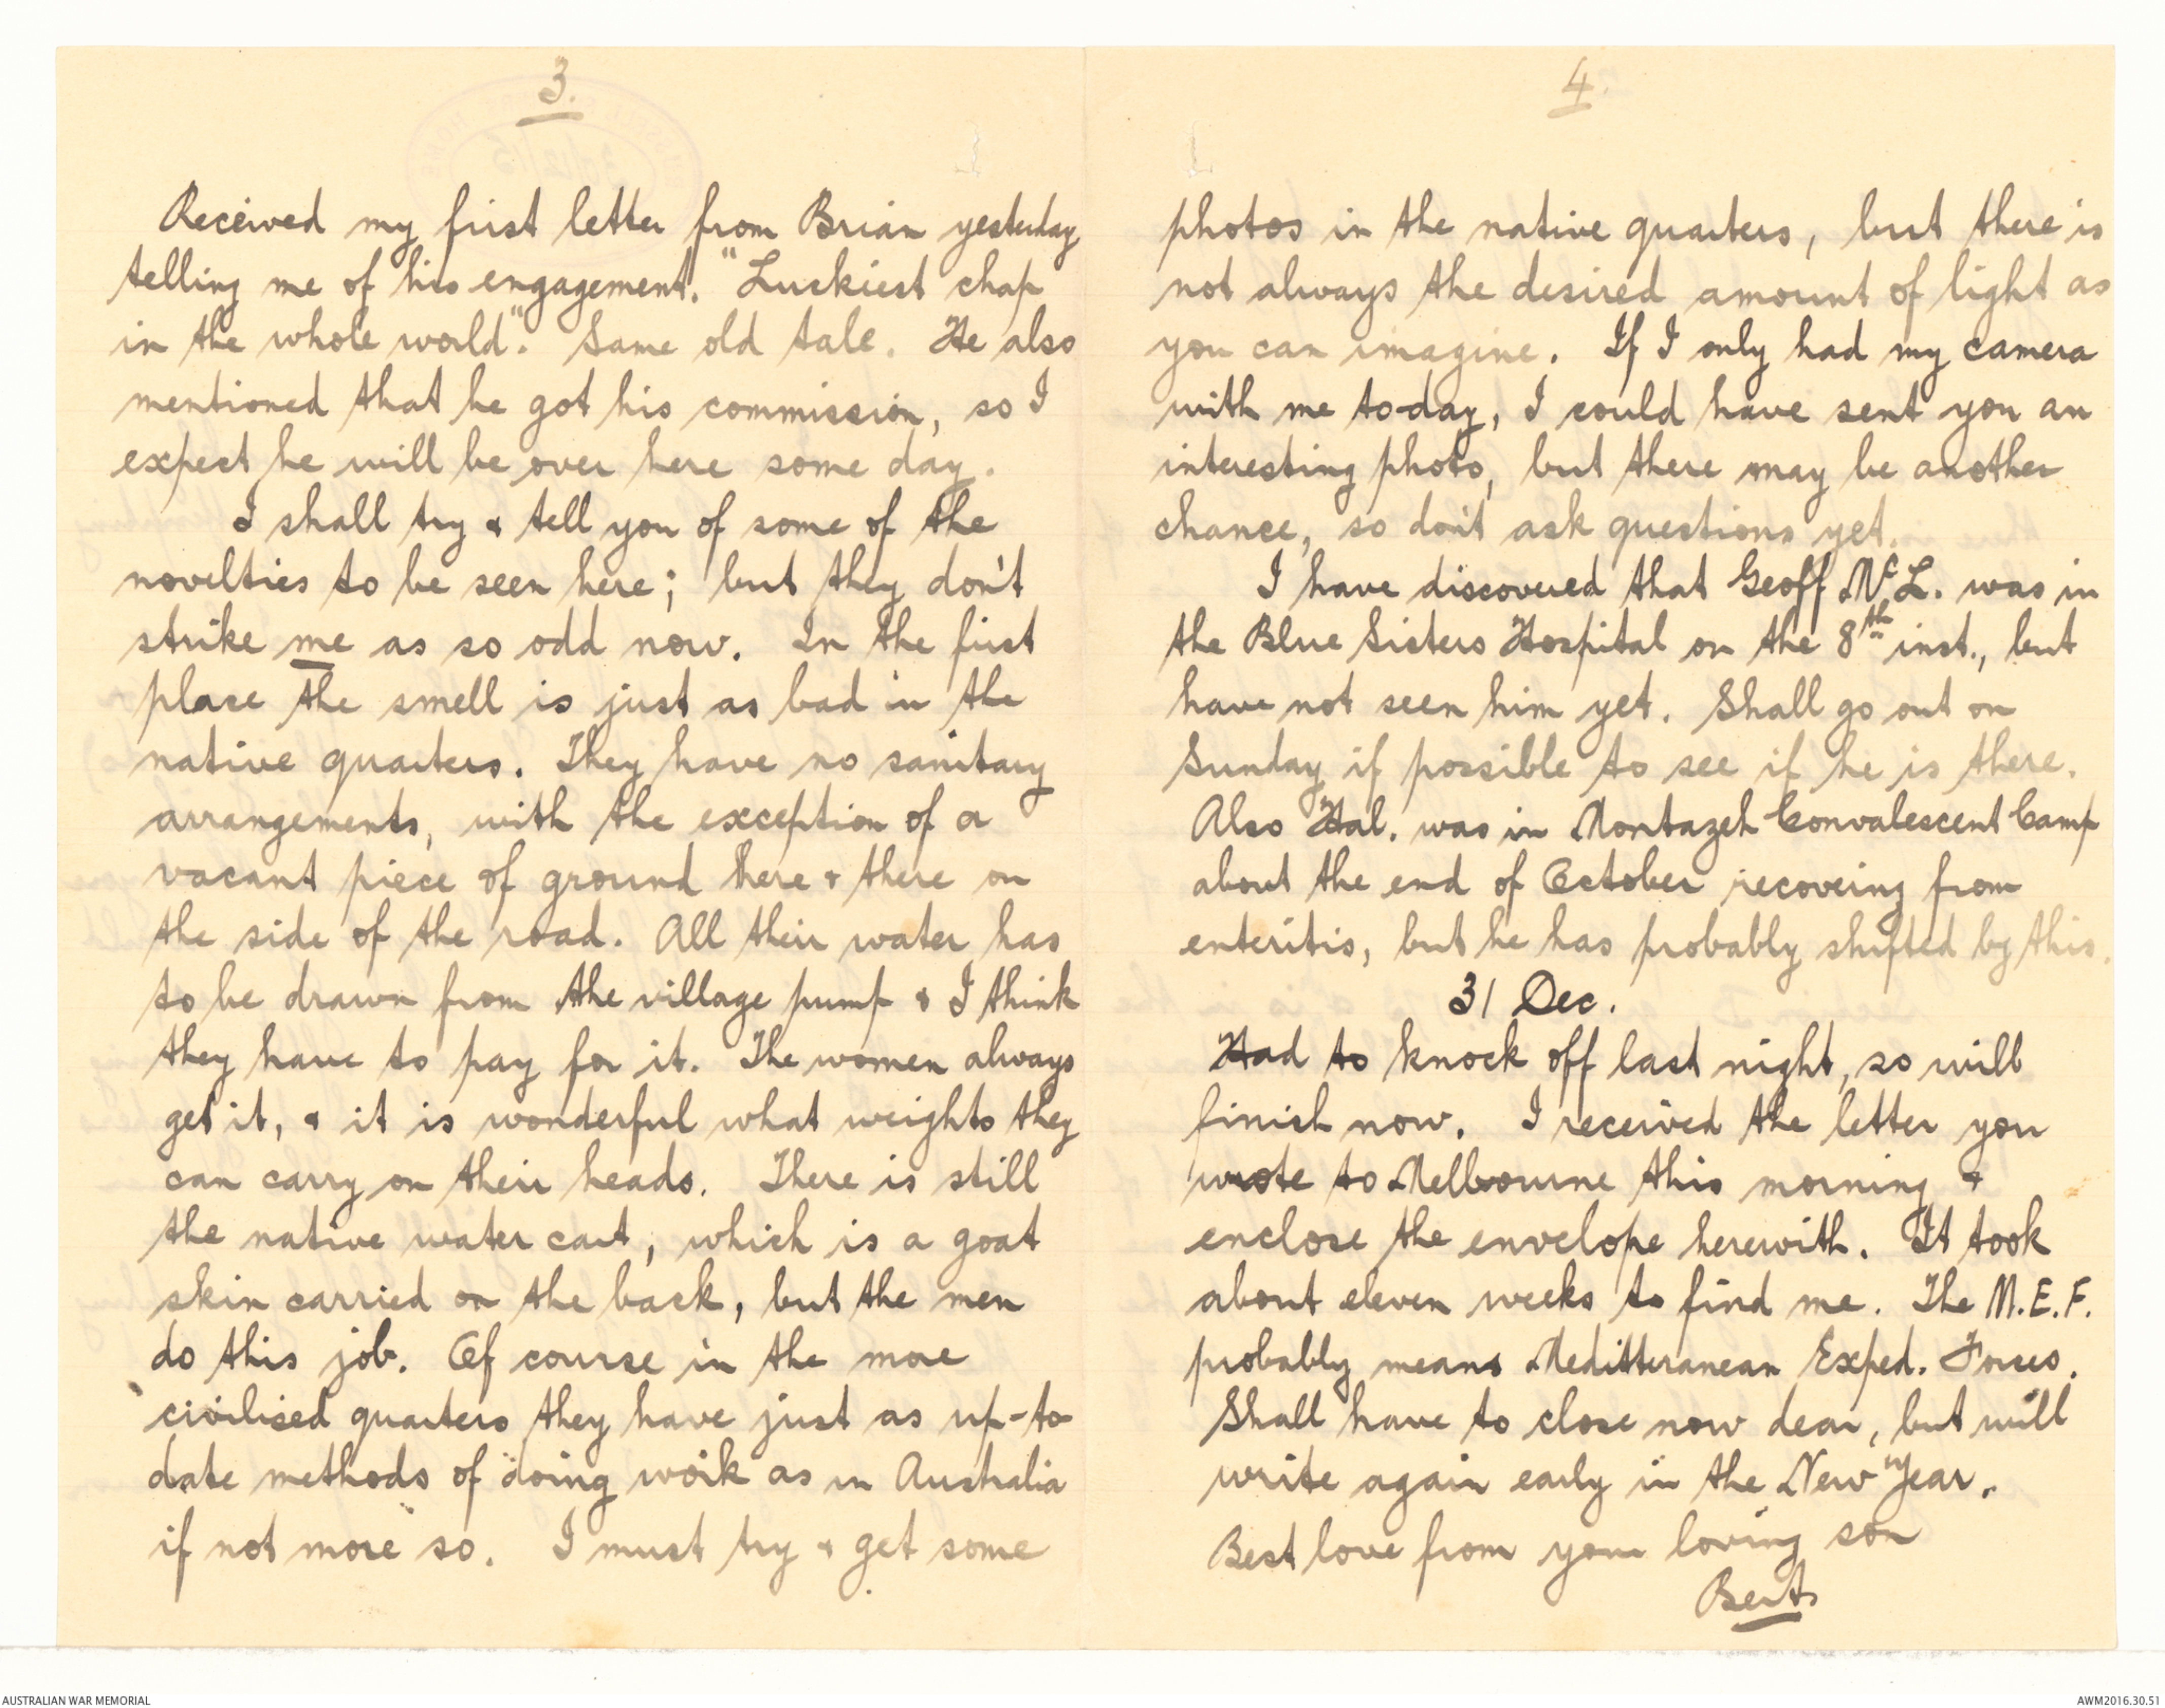 3.
Received my first letter from Brian yesterday
telling me of his engagement. "Luckiest chap
in the whole world". Same old tale. He also
mentioned that he got his commission, so I
expect he will be over here some day.
I shall try & tell you of some of the
novelties to be seen here; but they don't
strike me as so odd now. In the first
place the smell is just as bad in the
native quarters. They have no sanitary
arrangements, with the exception of a
vacant piece of ground here & there on
the side of the road. All their water has
to be drawn from the village pump & I think
they have to pay for it. The women always
get it, & it is wonderful what weights they
can carry on their heads. There is still
the native water cart, which is a goat
skin carried on the back, but the men
do this job. Of course in the more
civilised quarters they have just as up-to-
date methods of doing work as in Australia
if not more so. I must try & get some
4.
photos in the native quarters, but there is
not always the desired amount of light as
you can imagine. If I only had my camera
with me to-day, I could have sent you an
interesting photo, but there may be another
chance, so don't ask questions yet.
I have discovered that Geoff McL. was in
the Blue Sisters Hospital on the 8th inst., but
have not seen him yet. Shall go out on
Sunday if possible to see if he is there.
Also Hal. was in Montazeh Convalescent Camp
about the end of October recoveing from
enteritis, but he has probably shifted by this.
31 Dec.
Had to knock off last night, so will
finish now. I received the letter you
wrote to Melbourne this morning &
enclose the envelope herewith. It took
about eleven weeks to find me. The M.E.F.
probably means Meditteranean Exped. Forces.
Shall have to close now dear, but will
write again early in the New Year.
Best love from your loving son
Bert.
AUSTRALIAN WAR MEMORIAL
AWM2016.30.51